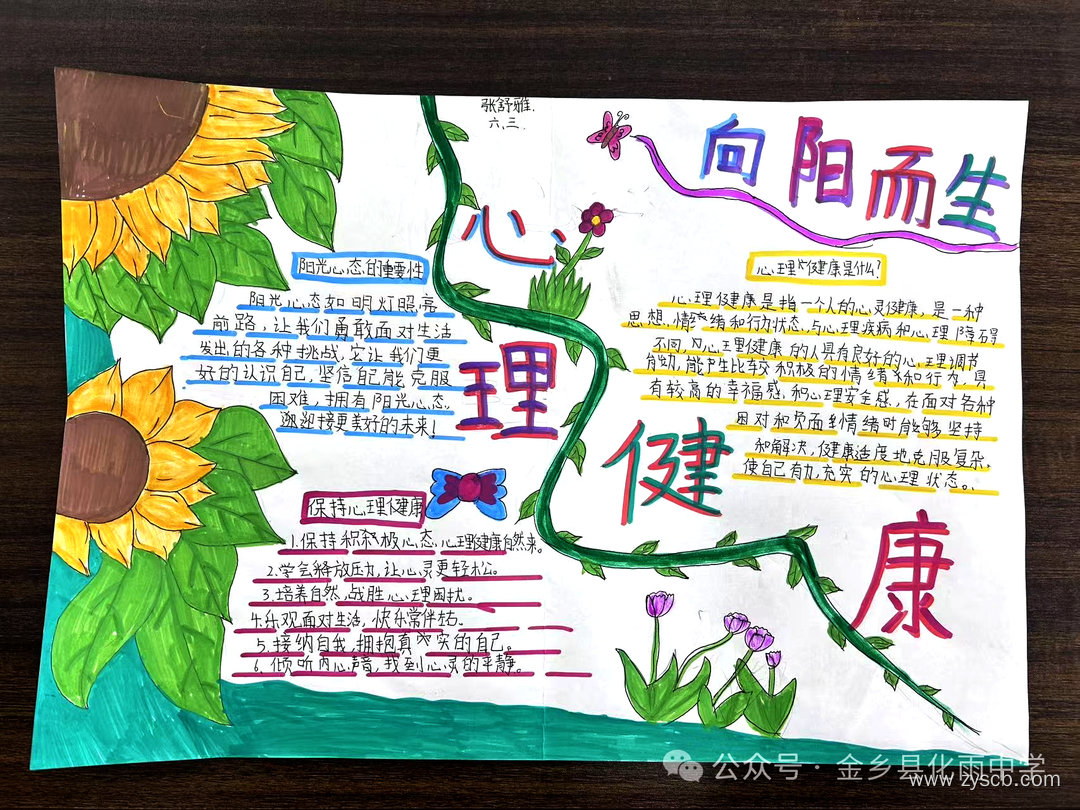 张舒雅.
六.三.
向阳而生
心理健康
阳光心态的重要性
阳光心态如明灯照亮
前路,让我们勇敢面对生活
发出的各种挑战,它让我们更
好的认识自己,坚信自己能克服
困难,拥有阳光心态.
迎接更美好的未来!
保持心理健康
1.保持积极心态,心理健康自然来。
2.学会释放压力,让心灵更轻松。
3.培养自然,战胜心理困扰。
4.乐观面对生活,快乐常伴
5.接纳自我,拥抱真实的自己。
6.倾听内心声音,找到心灵的平静。
心理健康是什么?
心理健康是指一个人的心灵健康,是一种
思想、情绪和行为状态,与心理疾病和心理障碍
不同,心理健康的人具有良好的心理调节
能产生比较积极的情绪和行为,具
有较高的幸福感,和心理安全感,在面对各种
困对和负面情绪时能够坚持
和解决,健康适度地克服复杂,
使自己有充实的心理状态。
公众号·金乡县化雨中学
www.zyscb.com